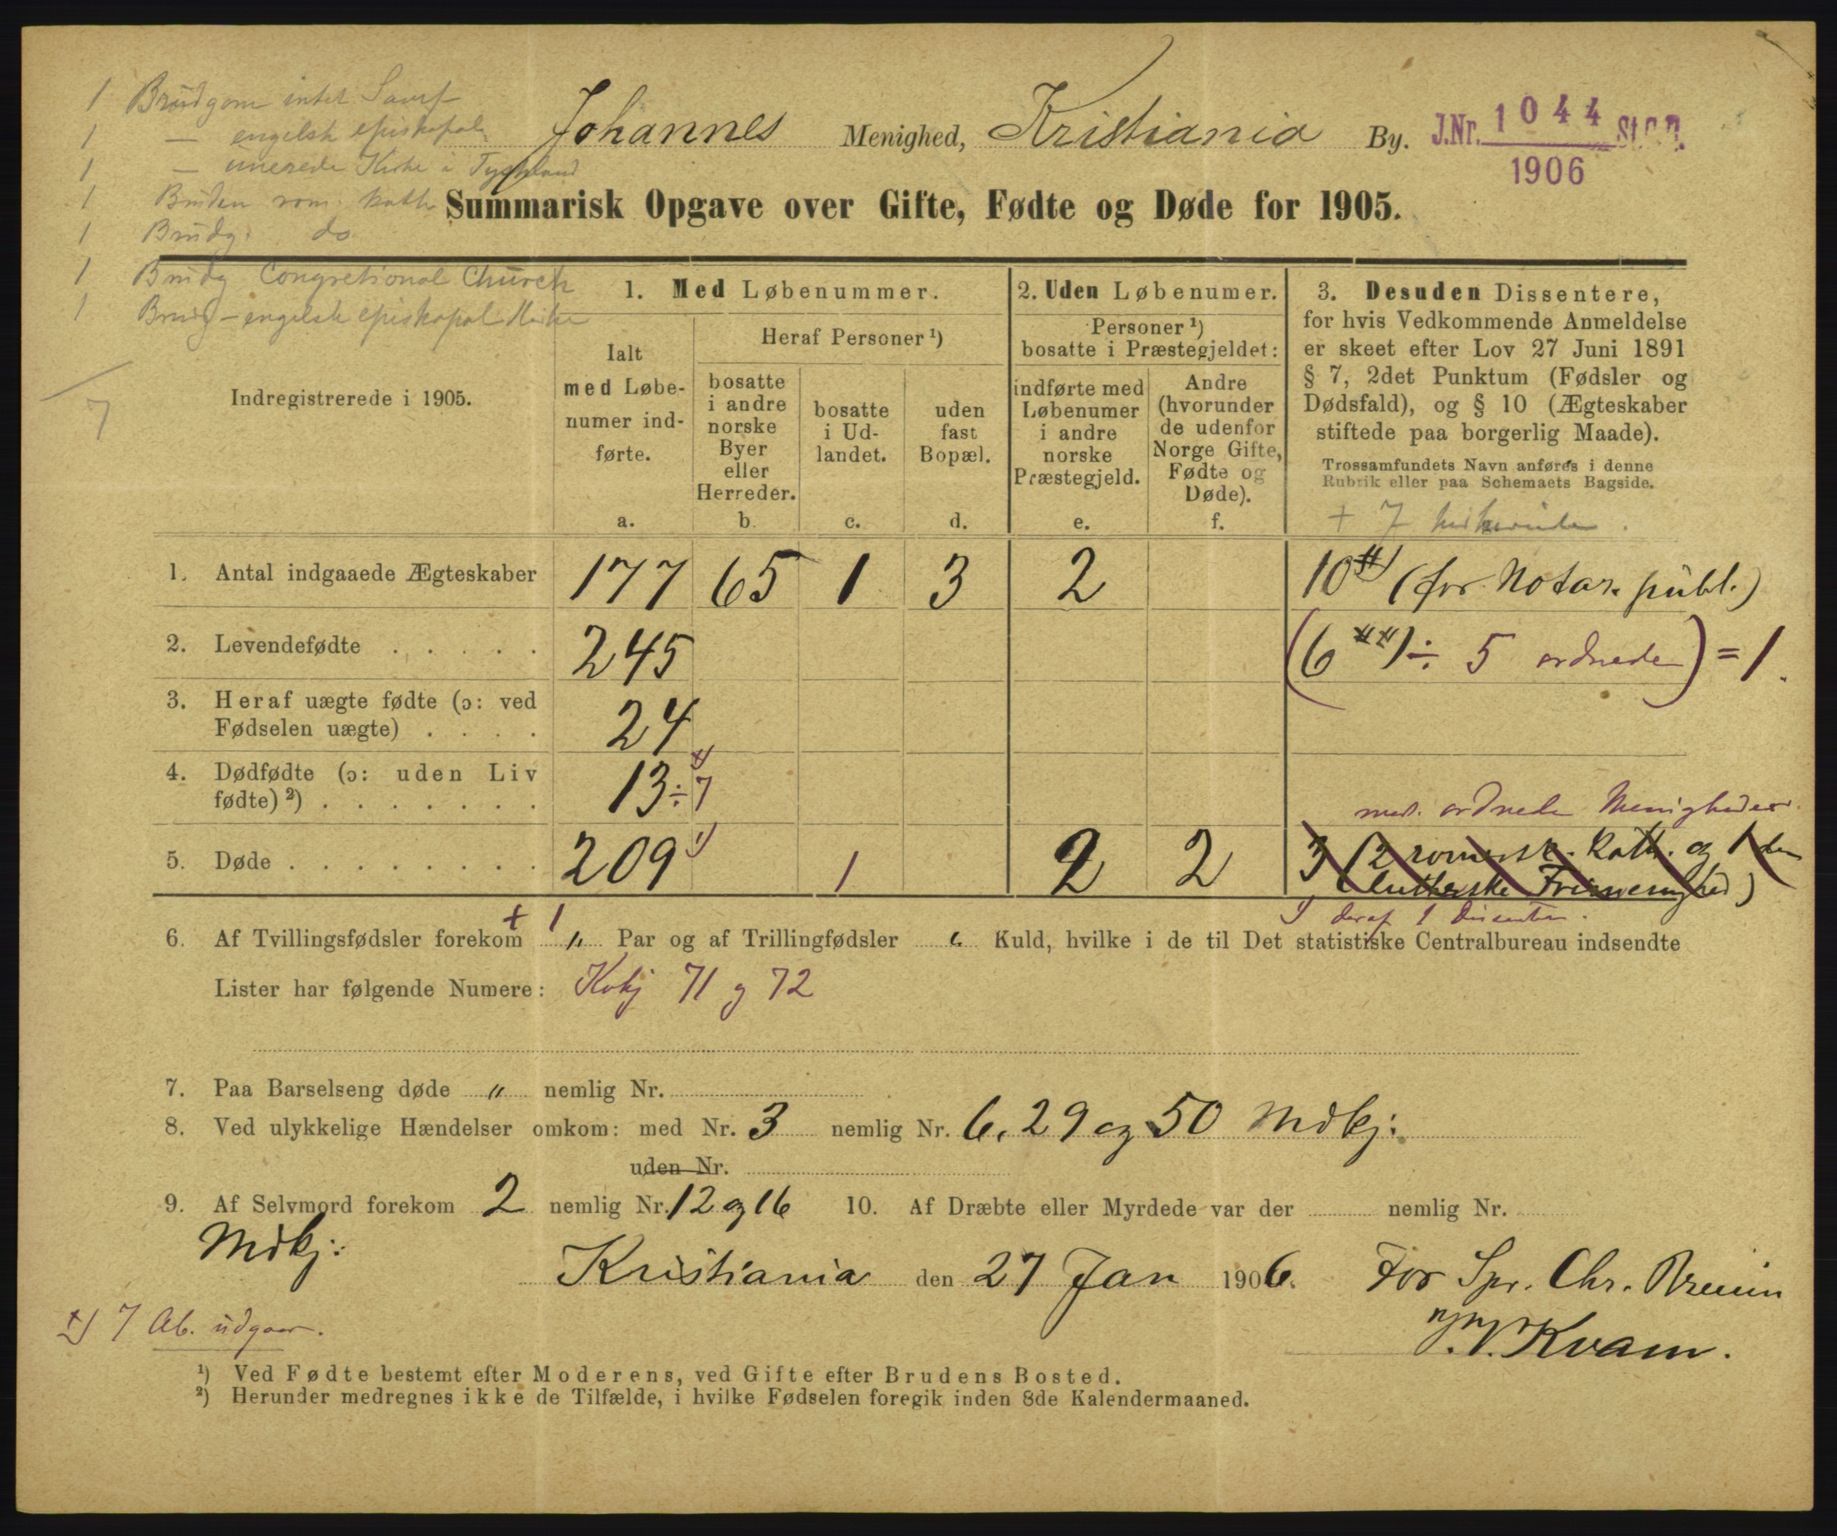 1 Brudgom intet Samf
1 — engelsk episkopal
1 — unerede Kirke i Tyskland
1 Bruden rom. kath
1 Brudg. do
1 Brudg Congretional Church
1 Brudg - engelsk episkopal Kirke
7
Johannes Menighed, Kristiania By.
J.Nr. 1044 St.C.B.
1906
Summarisk Opgave over Gifte, Fødte og Døde for 1905.
Indregistrerede i 1905.
1. Med Løbenummer.
Ialt
med Løbe-
numer ind-
førte.
a.
Heraf Personer ¹)
bosatte
i andre
norske
Byer
eller
Herreder.
b.
bosatte
i Ud-
landet.
c.
uden
fast
Bopæl.
d.
2. Uden Løbenumer.
Personer ¹)
bosatte i Præstegjeldet:
indførte med
Løbenumer
i andre
norske
Præstegjeld.
e.
Andre
(hvorunder
de udenfor
Norge Gifte,
Fødte og
Døde).
f.
3. Desuden Dissentere,
for hvis Vedkommende Anmeldelse
er skeet efter Lov 27 Juni 1891
§ 7, 2det Punktum (Fødsler og
Dødsfald), og § 10 (Ægteskaber
stiftede paa borgerlig Maade).
Trossamfundets Navn anføres i denne
Rubrik eller paa Schemaets Bagside.
+ 7
1. Antal indgaaede Ægteskaber 177 65 1 3 2 10 #) (for Notar. publ.)
2. Levendefødte . . . . . 245 (6 ##) ÷ 5 ordnede) = 1.
3. Heraf uægte fødte (ɔ: ved
Fødselen uægte) . . . . 24
4. Dødfødte (ɔ: uden Liv
fødte) ²) . . . . . . . 13 ÷ 7 +)
med. ordnede Menigheder.
5. Døde . . . . . . . . 209 ¹) 1 2 2 3 (2 romersk. kath. og 1 den
lutherske Frimenighed)
deraf 1 Dissenter.
6. Af Tvillingsfødsler forekom + 1 " Par og af Trillingfødsler " Kuld, hvilke i de til Det statistiske Centralbureau indsendte
Lister har følgende Numere: Kvkj 71 og 72
7. Paa Barselseng døde " nemlig Nr.
8. Ved ulykkelige Hændelser omkom: med Nr. 3 nemlig Nr. 6, 29 og 50 Mdkj:
uden Nr.
9. Af Selvmord forekom 2 nemlig Nr. 12 og 16 10. Af Dræbte eller Myrdede var der nemlig Nr.
Mdkj:
Kristiania den 27 Jan 1906. For Spr. Chr. Bruun
N. Kvam.
+) 7 Ab. udgaar.
¹) Ved Fødte bestemt efter Moderens, ved Gifte efter Brudens Bosted.
²) Herunder medregnes ikke de Tilfælde, i hvilke Fødselen foregik inden 8de Kalendermaaned.